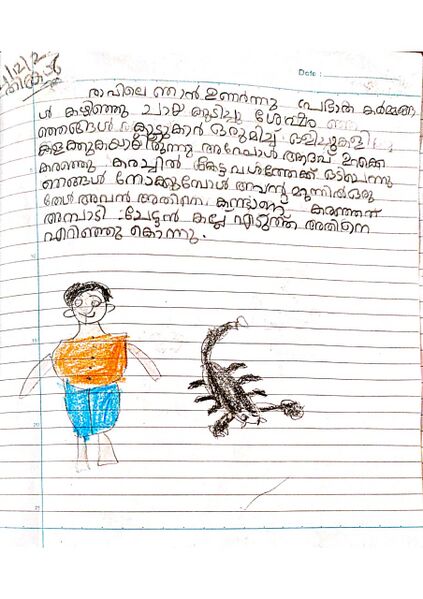 Date :
1/2/2
തിങ്കൾ
രാവിലെ ഞാൻ ഉണർന്നു പ്രഭാത കർമ്മങ്ങ
ൾ കഴിഞ്ഞു ചായ കുടിച്ചു ശേഷം
ഞങ്ങൾ കൂട്ടുകാർ ഒരുമിച്ച് ഒളിച്ചുകളി
കളക്കുകയായിരുന്നു അപ്പോൾ ആദവ് ഉറക്കെ
കരഞ്ഞു കരച്ചിൽ കേട്ട വശത്തേക്ക് ഓടിചെന്നു
ഞങ്ങൾ നോക്കുമ്പോൾ അവന്റെ മുന്നിൽ ഒരു
തേൾ അവൻ അതിനെ കണ്ടാണ് കരഞ്ഞത്
അമ്പാടി ചേട്ടൻ കല്ല് എടുത്ത് അതിനെ
എറിഞ്ഞു കൊന്നു.